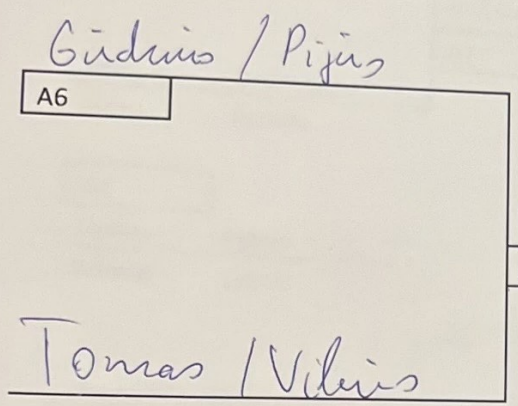 Giedrius / Pijus
A6
Tomas / Vilius